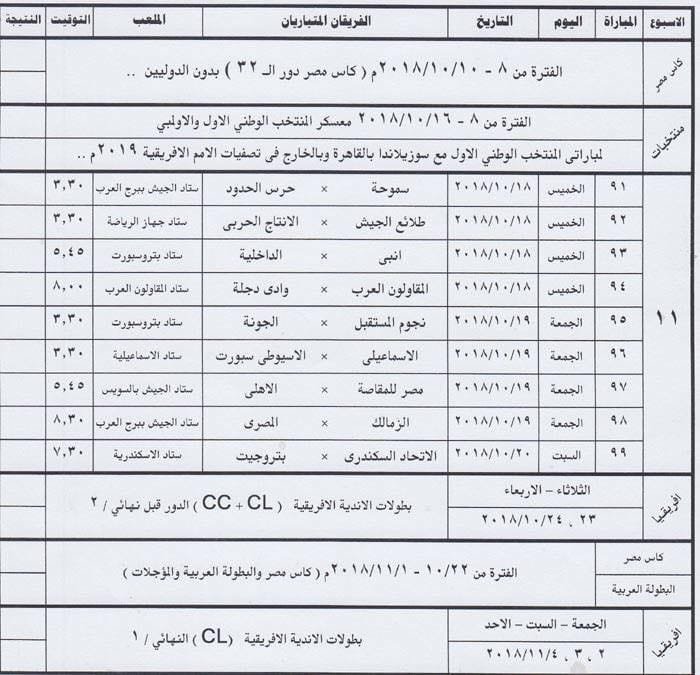 الاسبوع المباراة اليوم التاريخ الفريقان المتباريان الملعب التوقيت النتيجة
كاس مصر
الفترة من ٨ - ٢٠١٨/١٠/١٠م ( كاس مصر دور الـ ٣٢ ) بدون الدوليين ..
منتخبات
الفترة من ٨ - ٢٠١٨/١٠/١٦ معسكر المنتخب الوطني الاول والاولمبي
لمباراتى المنتخب الوطني الاول مع سوزيلاندا بالقاهرة وبالخارج فى تصفيات الامم الافريقية ٢٠١٩م ..
١١
٩١ الخميس ٢٠١٨/١٠/١٨ سموحة × حرس الحدود ستاد الجيش ببرج العرب ٣,٣٠
٩٢ الخميس ٢٠١٨/١٠/١٨ طلائع الجيش × الانتاج الحربى ستاد جهاز الرياضة ٣,٣٠
٩٣ الخميس ٢٠١٨/١٠/١٨ انبى × الداخلية ستاد بتروسبورت ٥,٤٥
٩٤ الخميس ٢٠١٨/١٠/١٨ المقاولون العرب × وادى دجلة ستاد المقاولون العرب ٨,٠٠
٩٥ الجمعة ٢٠١٨/١٠/١٩ نجوم المستقبل × الجونة ستاد بتروسبورت ٣,٣٠
٩٦ الجمعة ٢٠١٨/١٠/١٩ الاسماعيلى × الاسيوطى سبورت ستاد الاسماعيلية ٣,٣٠
٩٧ الجمعة ٢٠١٨/١٠/١٩ مصر للمقاصة × الاهلى ستاد الجيش بالسويس ٥,٤٥
٩٨ الجمعة ٢٠١٨/١٠/١٩ الزمالك × المصرى ستاد الجيش ببرج العرب ٨,٣٠
٩٩ السبت ٢٠١٨/١٠/٢٠ الاتحاد السكندرى × بتروجيت ستاد الاسكندرية ٧,٣٠
افريقيا
الثلاثاء – الاربعاء
٢٣ ، ٢٠١٨/١٠/٢٤
بطولات الاندية الافريقية ( CC + CL ) الدور قبل نهائي / ٢
كاس مصر
البطولة العربية
الفترة من ١٠/٢٢ - ٢٠١٨/١١/١م ( كاس مصر والبطولة العربية والمؤجلات )
افريقيا
الجمعة – السبت – الاحد
٢ ، ٣ ، ٢٠١٨/١١/٤
بطولات الاندية الافريقية (CL ) النهائي / ١